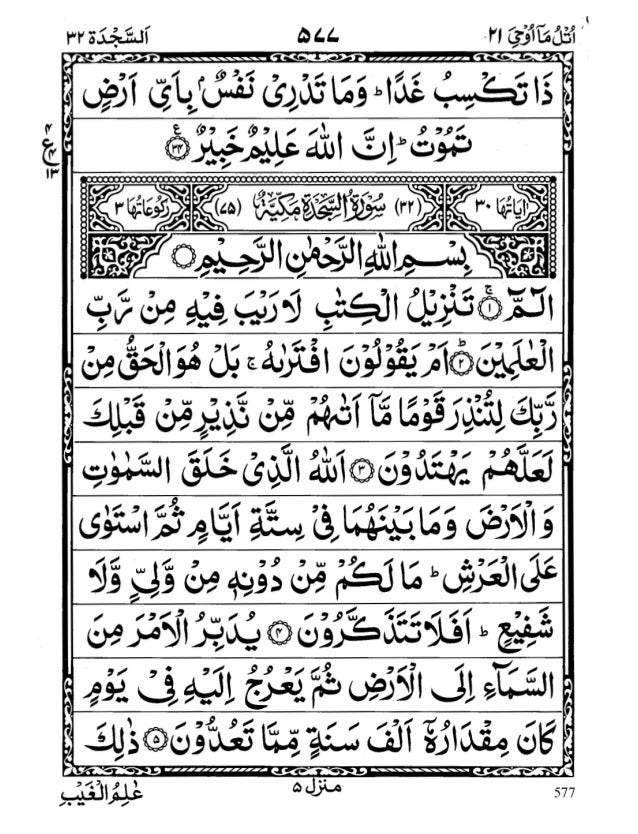 اُتْلُ مَآ اُوْحِيَ ٢١ ٥٧٧ اَلسَّجْدَة ٣٢
ذَا تَكْسِبُ غَدًا ؕ وَمَا تَدْرِىْ نَفْسٌۢ بِاَىِّ اَرْضٍ
تَمُوْتُ ؕ اِنَّ اللّٰهَ عَلِيْمٌ خَبِيْرٌ ۝٣٤
٤
ع
٤
١٣
اٰيَاتُهَا ٣٠ (٣٢) سُوْرَةُ السَّجْدَةِ مَكِّيَّةٌ (٧٥) رُكُوْعَاتُهَا ٣
بِسْمِ اللّٰهِ الرَّحْمٰنِ الرَّحِيْمِ ۝
الٓمّٓ ۝١ۚ تَنْزِيْلُ الْكِتٰبِ لَا رَيْبَ فِيْهِ مِنْ رَّبِّ
الْعٰلَمِيْنَ ۝٢ؕ اَمْ يَقُوْلُوْنَ افْتَرٰىهُ ۚ بَلْ هُوَ الْحَقُّ مِنْ
رَّبِّكَ لِتُنْذِرَ قَوْمًا مَّآ اَتٰىهُمْ مِّنْ نَّذِيْرٍ مِّنْ قَبْلِكَ
لَعَلَّهُمْ يَهْتَدُوْنَ ۝٣ اَللّٰهُ الَّذِىْ خَلَقَ السَّمٰوٰتِ
وَالْاَرْضَ وَمَا بَيْنَهُمَا فِىْ سِتَّةِ اَيَّامٍ ثُمَّ اسْتَوٰى
عَلَى الْعَرْشِ ؕ مَا لَكُمْ مِّنْ دُوْنِهٖ مِنْ وَّلِىٍّ وَّلَا
شَفِيْعٍ ؕ اَفَلَا تَتَذَكَّرُوْنَ ۝٤ يُدَبِّرُ الْاَمْرَ مِنَ
السَّمَآءِ اِلَى الْاَرْضِ ثُمَّ يَعْرُجُ اِلَيْهِ فِىْ يَوْمٍ
كَانَ مِقْدَارُهٗٓ اَلْفَ سَنَةٍ مِّمَّا تَعُدُّوْنَ ۝٥ ذٰلِكَ
577 منزل ٥ عٰلِمُ الْغَيْبِ